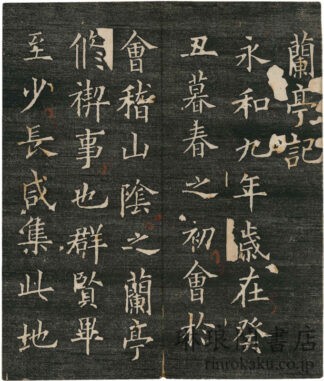 蘭亭記
永和九年歲在癸
丑暮春之初會於
會稽山陰之蘭亭
脩禊事也群賢畢
至少長咸集此地
琳琅閣書店
rinrokaku.co.jp